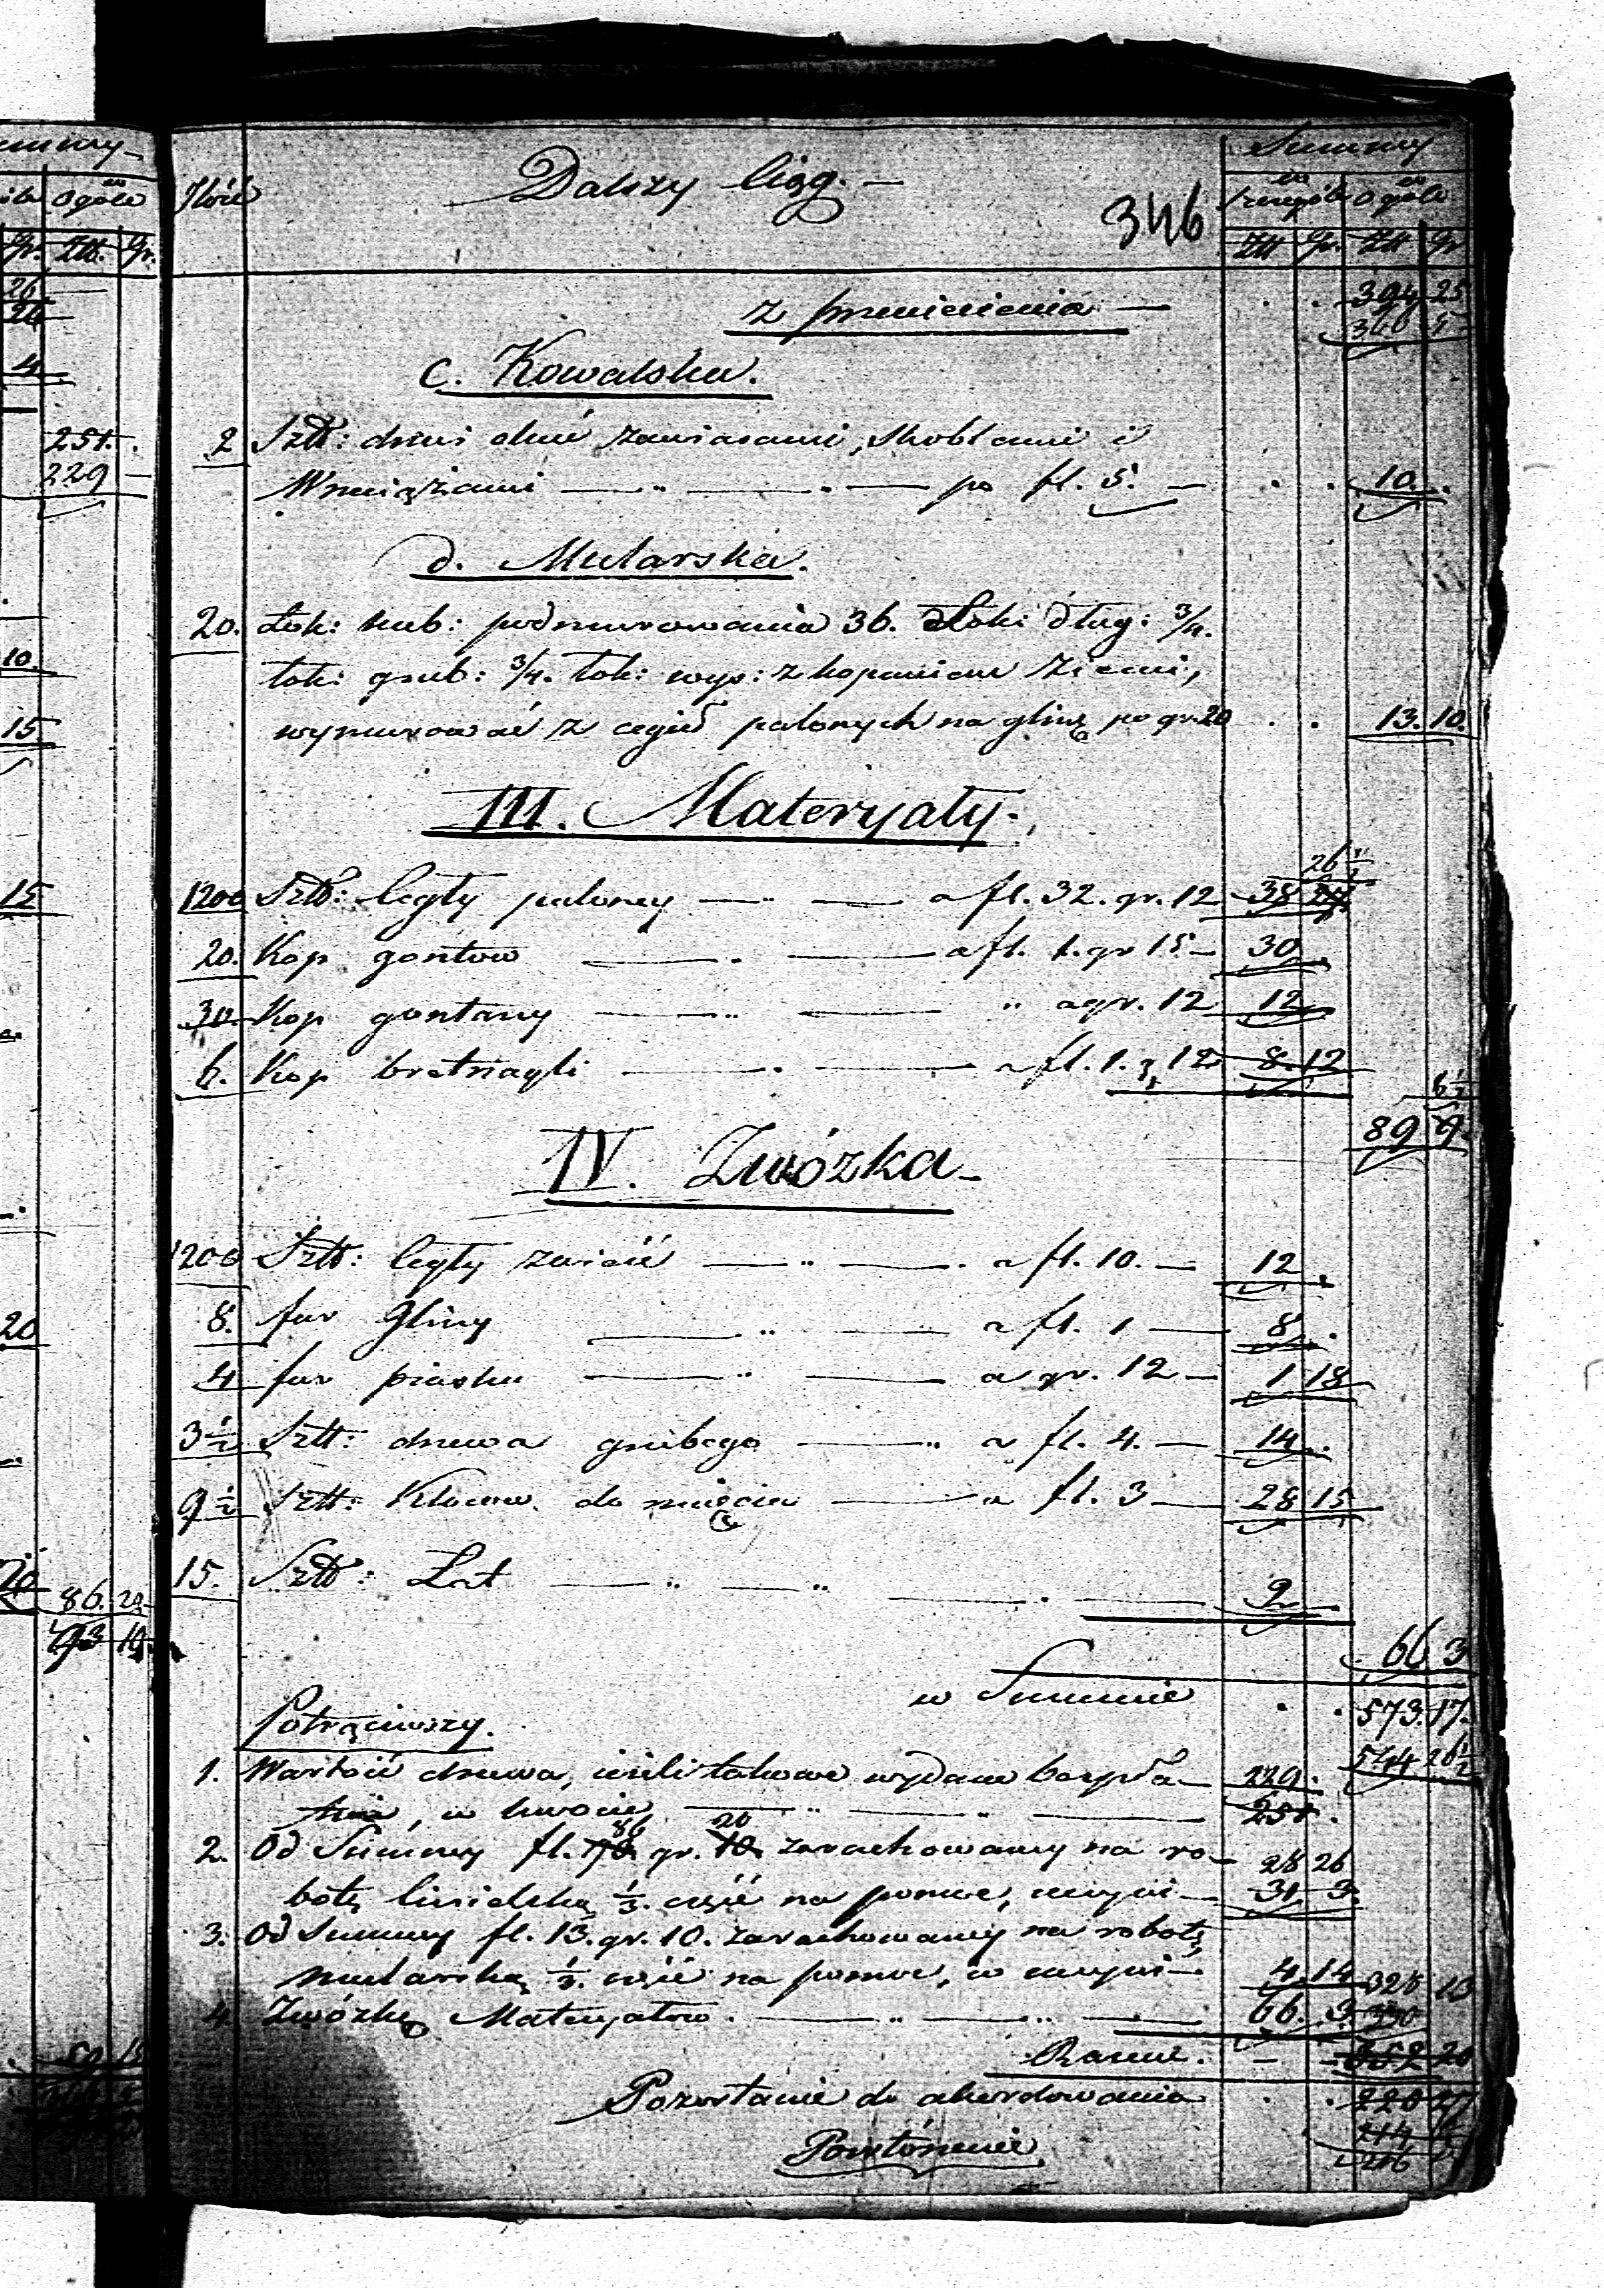 Summy
w Ogóle
Gr. Złt. Gr.
26
26
4
251.
229
10.
15
15
20
86. 20
93 10
Ilość
Dalszy Ciąg. —
346
Summy
w Szczególe w Ogóle
Złt Gr. Złt Gr
z przeniesienia — . . 394 25
366 5
C. Kowalska.
2 Sztk: drzwi okuć zawiasami, skoblami i
Wrzeciążami — " — " — po fl. 5. — . . 10. .
d. Mularska.
20. Łok: kub: podmurowania 36. Łok: dług: 3/4.
łok: grub: 3/4. łok: wys: z kopaniem ziemi,
wymurować z cegieł palonych na glinę po gr. 20 . . 13. 10.
III. Materyały.
26 1/2
1200 Sztk: Cegły paloney — " — a fl. 32. gr. 12 38
20. Kop gontow — " — a fl. 1. gr 15. — 30 .
30. Kop gontaży — " — " a gr. 12 12 .
6. Kop bretnagli — " — a fl. 1. g 12 8. 12
6 1/2
89 9.
IV. Zwózka —
1200 Sztk: Cegły zwieść — " — . a fl. 10. — 12 .
8. fur Gliny — " — a fl. 1 — 8 .
4 fur piasku — " — a gr. 12 — 1 18
3 1/2 Sztk: drzewa grubego — " a fl. 4. — 14 .
9 1/2 Sztk: Klocow do rznięcia — a fl. 3 — 28 15
15. Sztk: Łat — " — " — . — 2
66 3
w Summie . . 573. 17.
Potrąciwszy.
544 26 1/2
1. Wartość drzewa, jeżeli takowe wydane bezpła- 229 .
tnie, w kwocie — " — " — 251 .
86 20
2. Od Summy fl. gr. 10 zarachowany na ro- 28 26
botę Ciesielską 1/3. część na pomoc, czyni — 31. 3.
3. Od Summy fl. 13. gr. 10. zarachowany na robotę
mularską 1/3. część na pomoc, w czyni — 4 14 328 13
4. Zwózkę Materyałow. — " — " — 66. 3. 350
Razem. — — 352 20
Pozostanie do akordowania . . 220 27
214
216
Powtórzenie